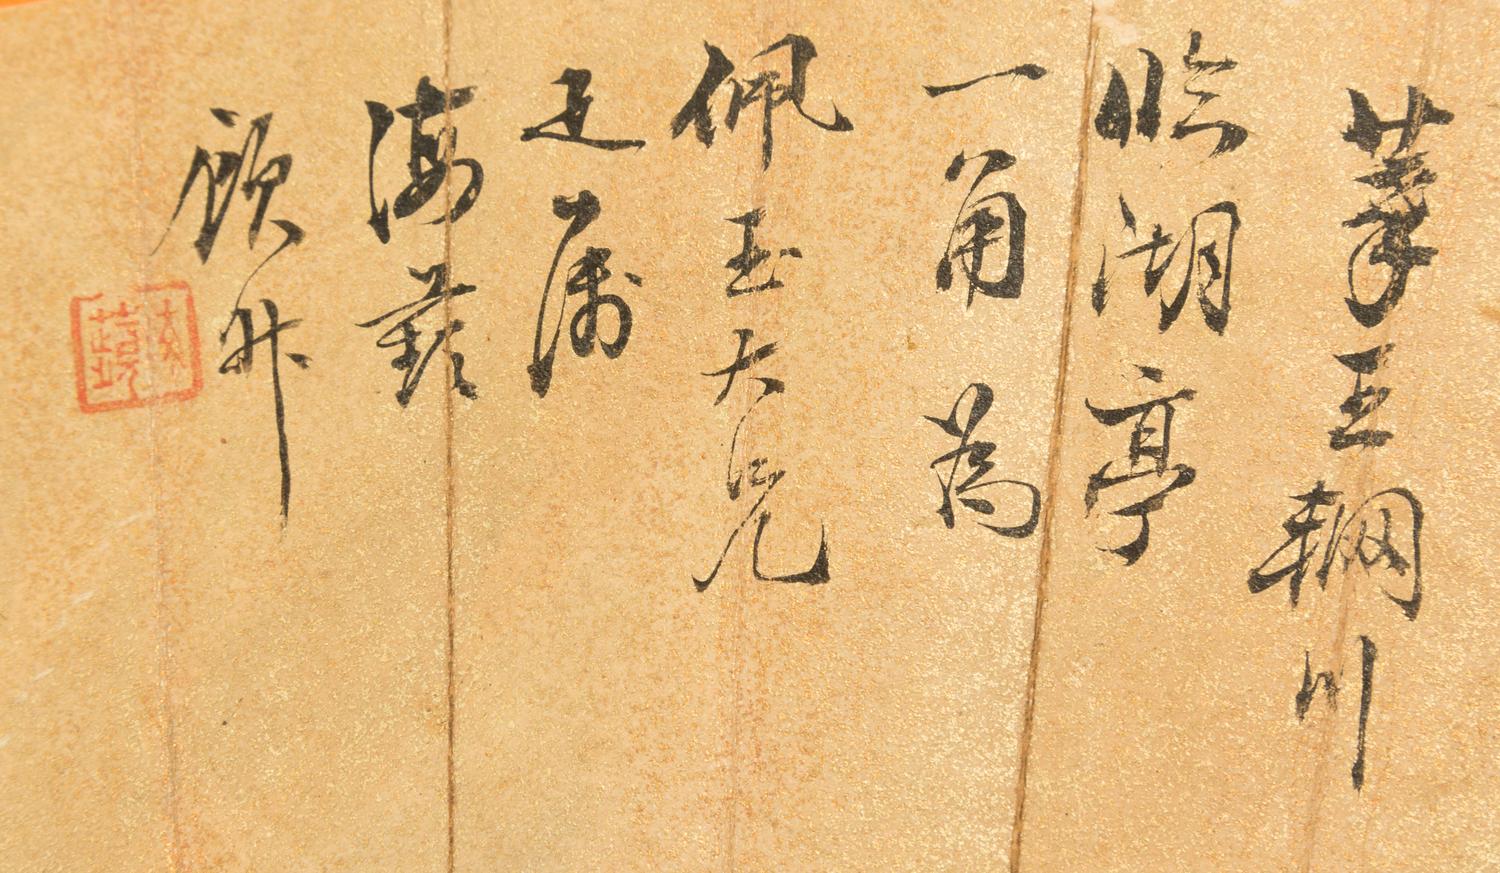 摹王輞川
臨湖亭
一角為
佩玉大兄
正屬
海
顧升